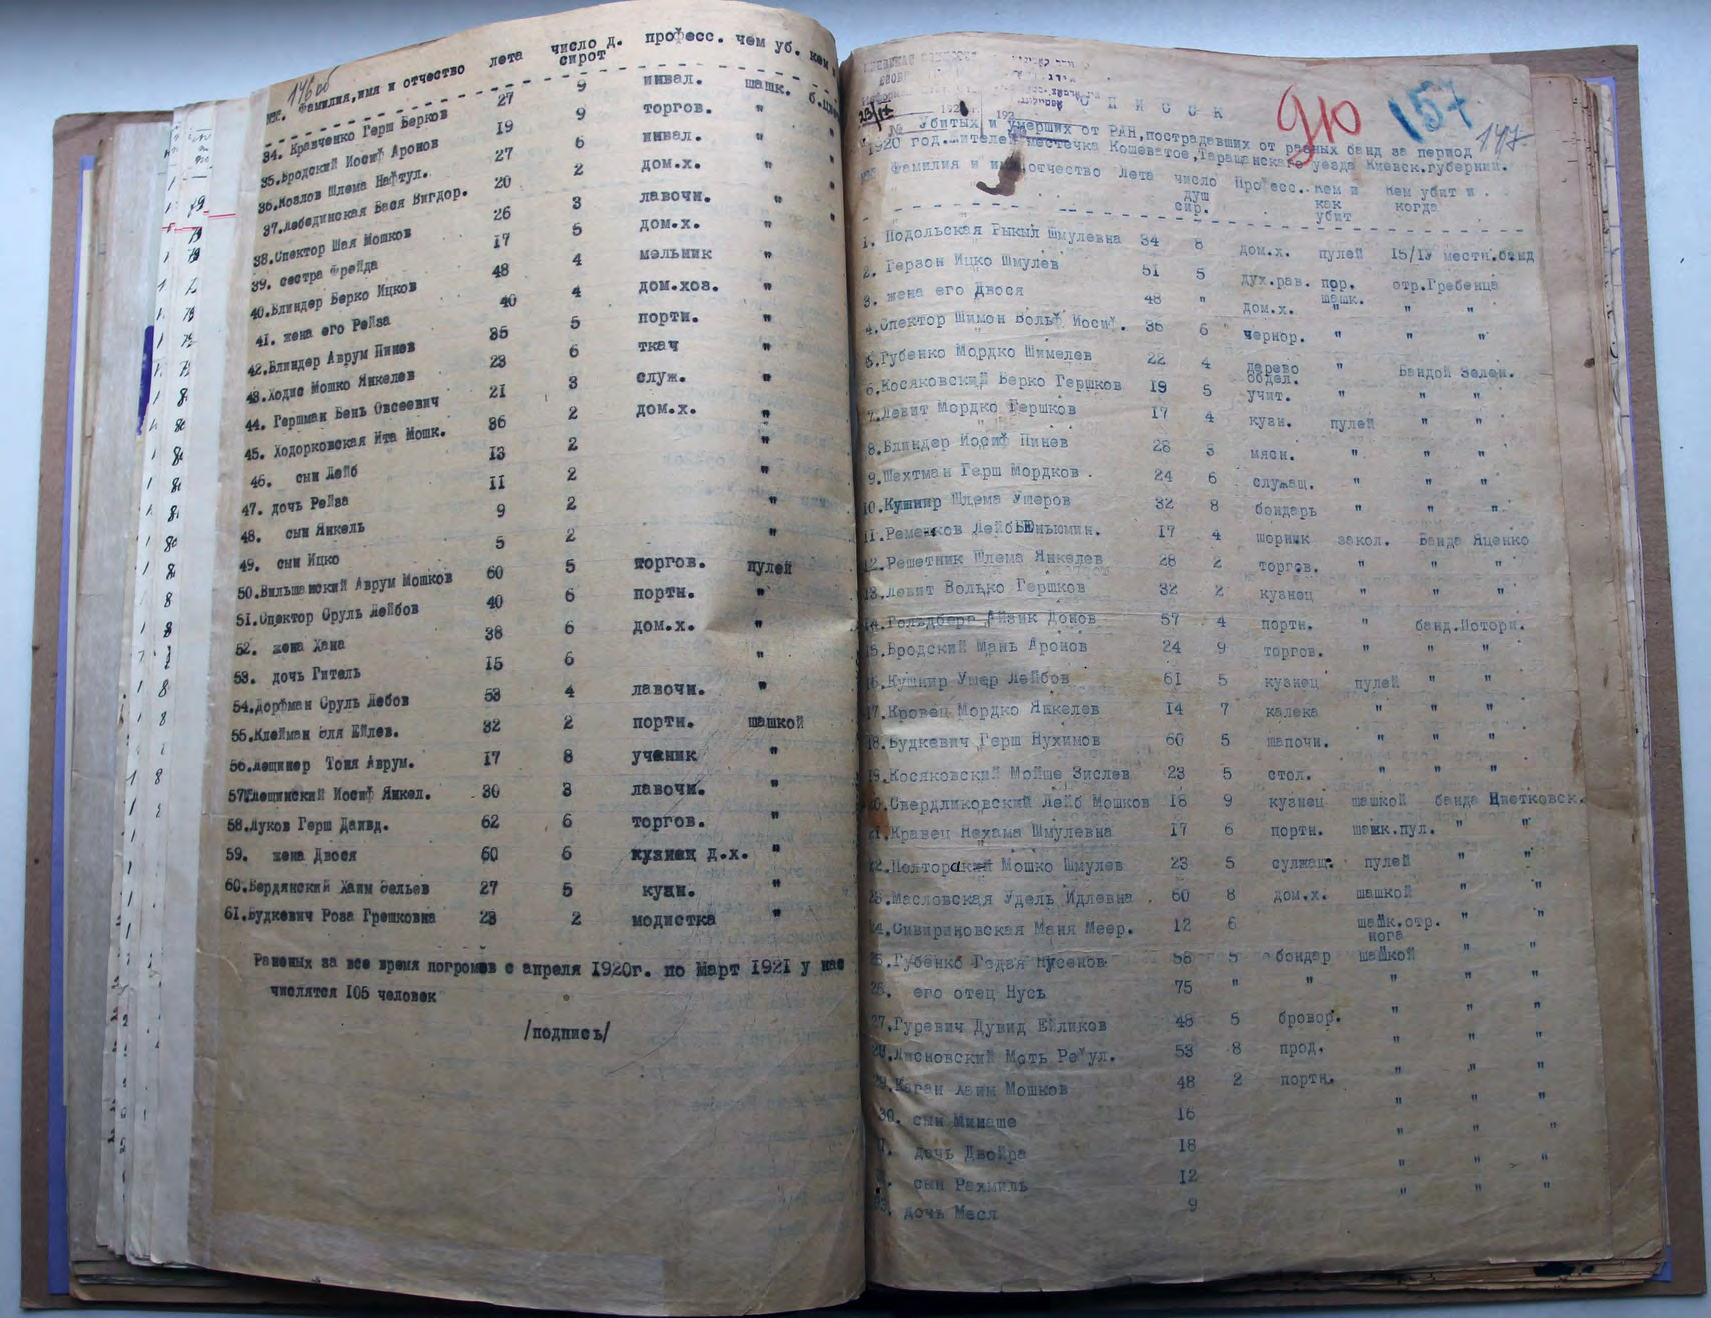 146об
№№. Фамилия, имя и отчество лета число д. сирот професс. чем уб. кем
34. Кравченко Герш Берков 27 9 инвал. шашк.
35.Бродский Иосиф Аронов 19 9 торгов. "
36.Козлов Шлема Нафтул. 27 6 инвал. "
37.Лебединская Бася Вигдор. 20 2 дом.х. "
38.Спектор Шая Мошков 26 3 лавочн. "
39. сестра Фрейда 17 5 дом.х. "
40.Блиндер Берко Ицков 48 4 мельник "
41. жена его Рейза 40 4 дом.хоз. "
42.Блиндер Аврум Пинев 35 5 портн. "
43.Ходис Мошко Янкелев 23 6 ткач "
44. Гершман Бень Овсеевич 21 3 служ. "
45. Ходорковская Ита Мошк. 36 2 дом.х. "
46. сын Лейб 13 2 "
47. дочь Рейза 11 2 "
48. сын Янкель 9 2 "
49. сын Ицко 5 2 "
50.Вильшанский Аврум Мошков 60 5 торгов. пулей
51.Спектор Сруль Лейбов 40 6 портн. "
52. жена Хана 38 6 дом.х. "
53. дочь Гитель 15 6 "
54.Дорфман Сруль Лебов 53 4 лавочн. "
55.Клейман Эля Ейлев. 32 2 портн. шашкой
56.Лещинер Тоня Аврум. 17 8 ученик "
57.Клещинский Иосиф Янкел. 30 3 лавочн. "
58.Луков Герш Давид. 62 6 торгов. "
59. жена Двося 60 6 кузнец д.х. "
60.Бердянский Хаим Зельев 27 5 кузн. "
61.Будкевич Роза Грешковна 23 2 модистка "
Раненых за все время погромов с апреля 1920г. по Март 1921 у нас
числятся 105 человек
/подпись/
90 157 147
С П И С О К
Убитых и умерших от РАН,пострадавших от разных банд за период
1920 год.жителей местечка Кошеватое,Таращанского уезда Киевск.губернии.
Фамилия и имя,отчество Лета число душ сир. Професс. Чем и как убит Кем убит и когда
1. Подольская Рыкыл Шмулевна 34 8 дом.х. пулей 15/IУ местн.банд
2. Герзон Ицко Шмулев 51 5 дух.рав. пор. шашк. отр.Гребенца
3. жена его Двося 48 " дом.х. " " "
4.Спектор Шимон Вольф Иосиф. 36 6 чернор. " " "
5.Губенко Мордко Шимелев 22 4 дерево обдел. " Бандой Зелен.
6.Косяковский Берко Гершков 19 5 учит. " " "
7.Левит Мордко Гершков 17 4 кузн. пулей " "
8.Блиндер Иосиф Пинев 28 3 мясн. " " "
9.Шехтман Герш Мордков . 24 6 служащ. " " "
10.Кушнир Шлема Ушеров 32 8 бондарь " " "
11.Ременков ЛейбБеньюмин. 17 4 шорник закол. Банда Яценко
12.Решетник Шлема Янкелев 28 2 торгов. " " "
13.Левит Волько Гершков 32 2 кузнец " " "
14.Гольдберг Айзик Донов 57 4 портн. " банд.Потори.
15.Бродский Мань Аронов 24 9 торгов. " " "
16.Кушнир Ушер Лейбов 61 5 кузнец пулей " "
17.Кровец Мордко Янкелев 14 7 калека " " "
18.Будкевич Герш Нухимов 60 5 шапочн. " " "
19.Косяковский Мойше Зислев 23 5 стол. " " "
20.Свердликовский Лейб Мошков 18 9 кузнец шашкой банда Цветковск.
21.Кравец Нехама Шмулевна 17 6 портн. шашк.пул. " "
22.Полторакий Мошко Шмулев 23 5 сулжащ. пулей " "
23.Масловская Удель Идлевна . 60 8 дом.х. шашкой " "
24.Сивириновская Маня Меер. 12 6 шашк.отр. нога " "
25.Губенко Годзя Нусенов 58 5 бондар шашкой " "
26. его отец Нусь 75 " " " " "
27.Гуревич Дувид Ейликов 48 5 бровор. " " "
28.Лисновский Моть Рефул. 53 8 прод. " " "
29.Каган Хаим Мошков 48 2 портн. " " "
30. сын Минаше 16 " " "
31. дочь Двойра 18 " " "
32. сын Рахмиль 12 " " "
33. дочь Меся 9 " " "